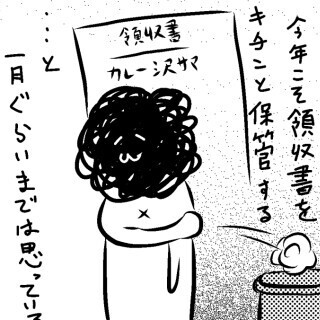 今年こそ領収書を
キチンと保管する
領収書
カレー沢サマ
…と
一月ぐらいまでは思っている